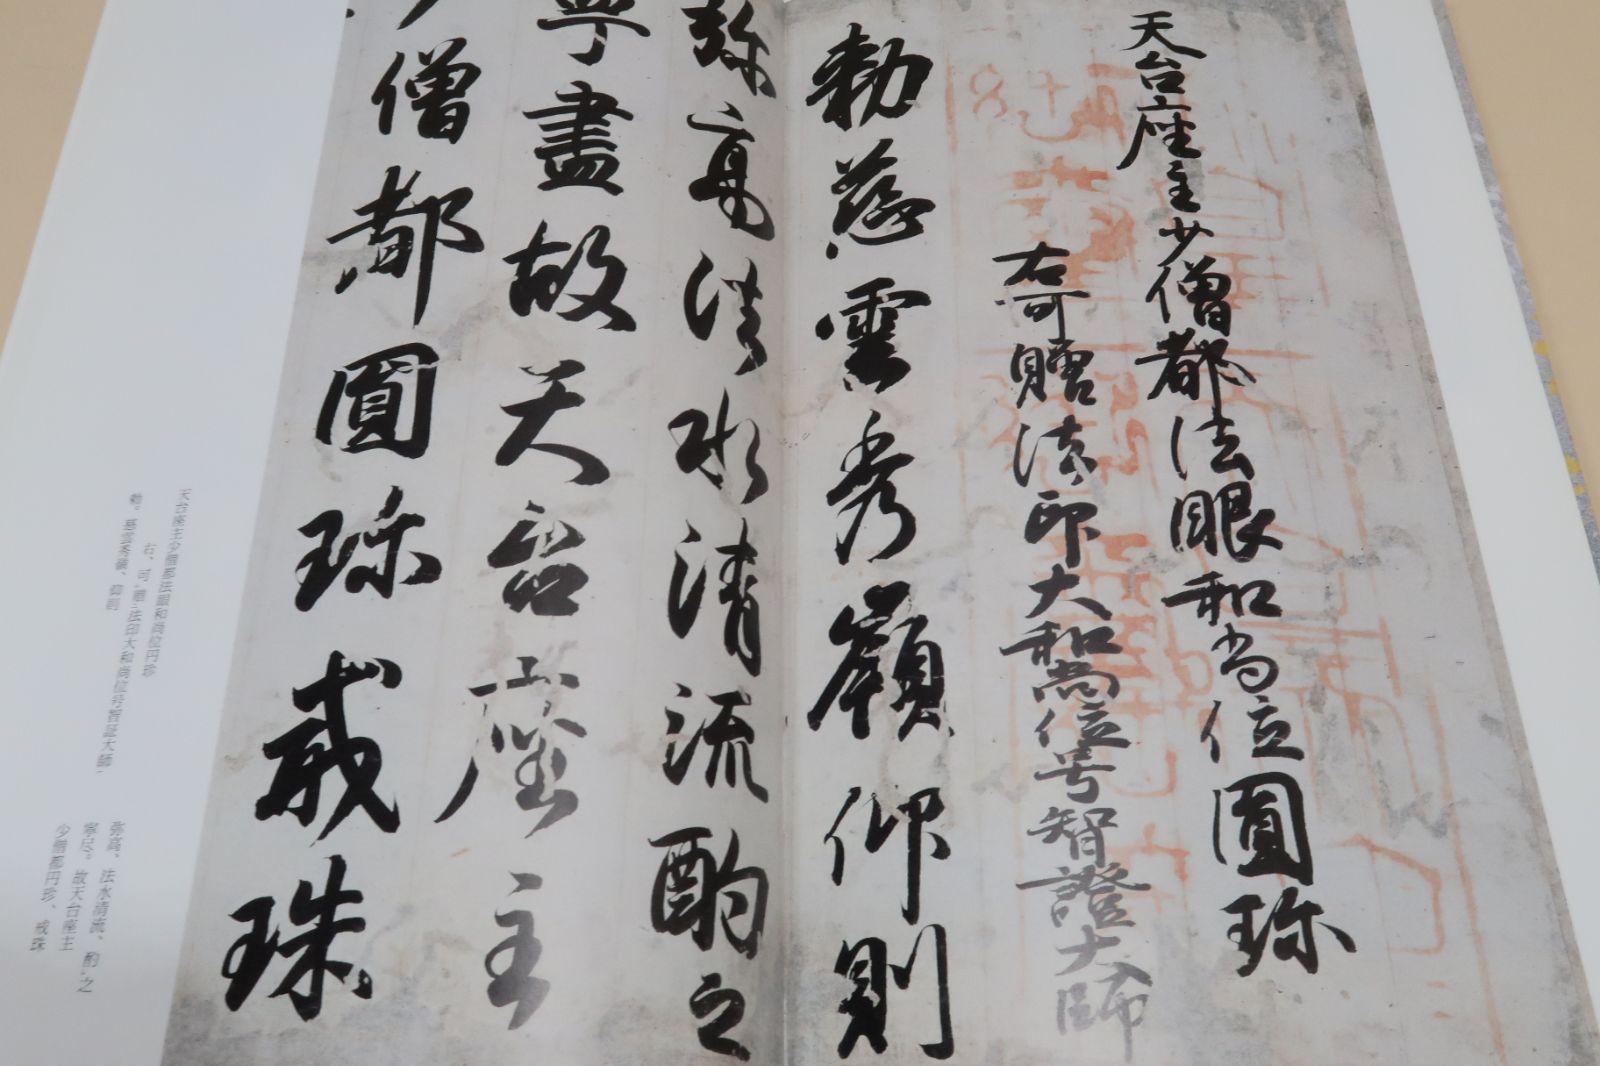 天台座主少僧都法眼和尚位圓珎
右可贈法印大和尚位号智證大師
勅慈雲秀嶺仰則
弥高法水清流酌之
寧盡故天台座主
少僧都圓珎戒珠
天台座主少僧都法眼和尚位円珍
右、可贈法印大和尚位号智証大師、
勅。慈雲秀嶺、仰則
弥高、法水清流、酌之
寧尽。故天台座主
少僧都円珍、戒珠